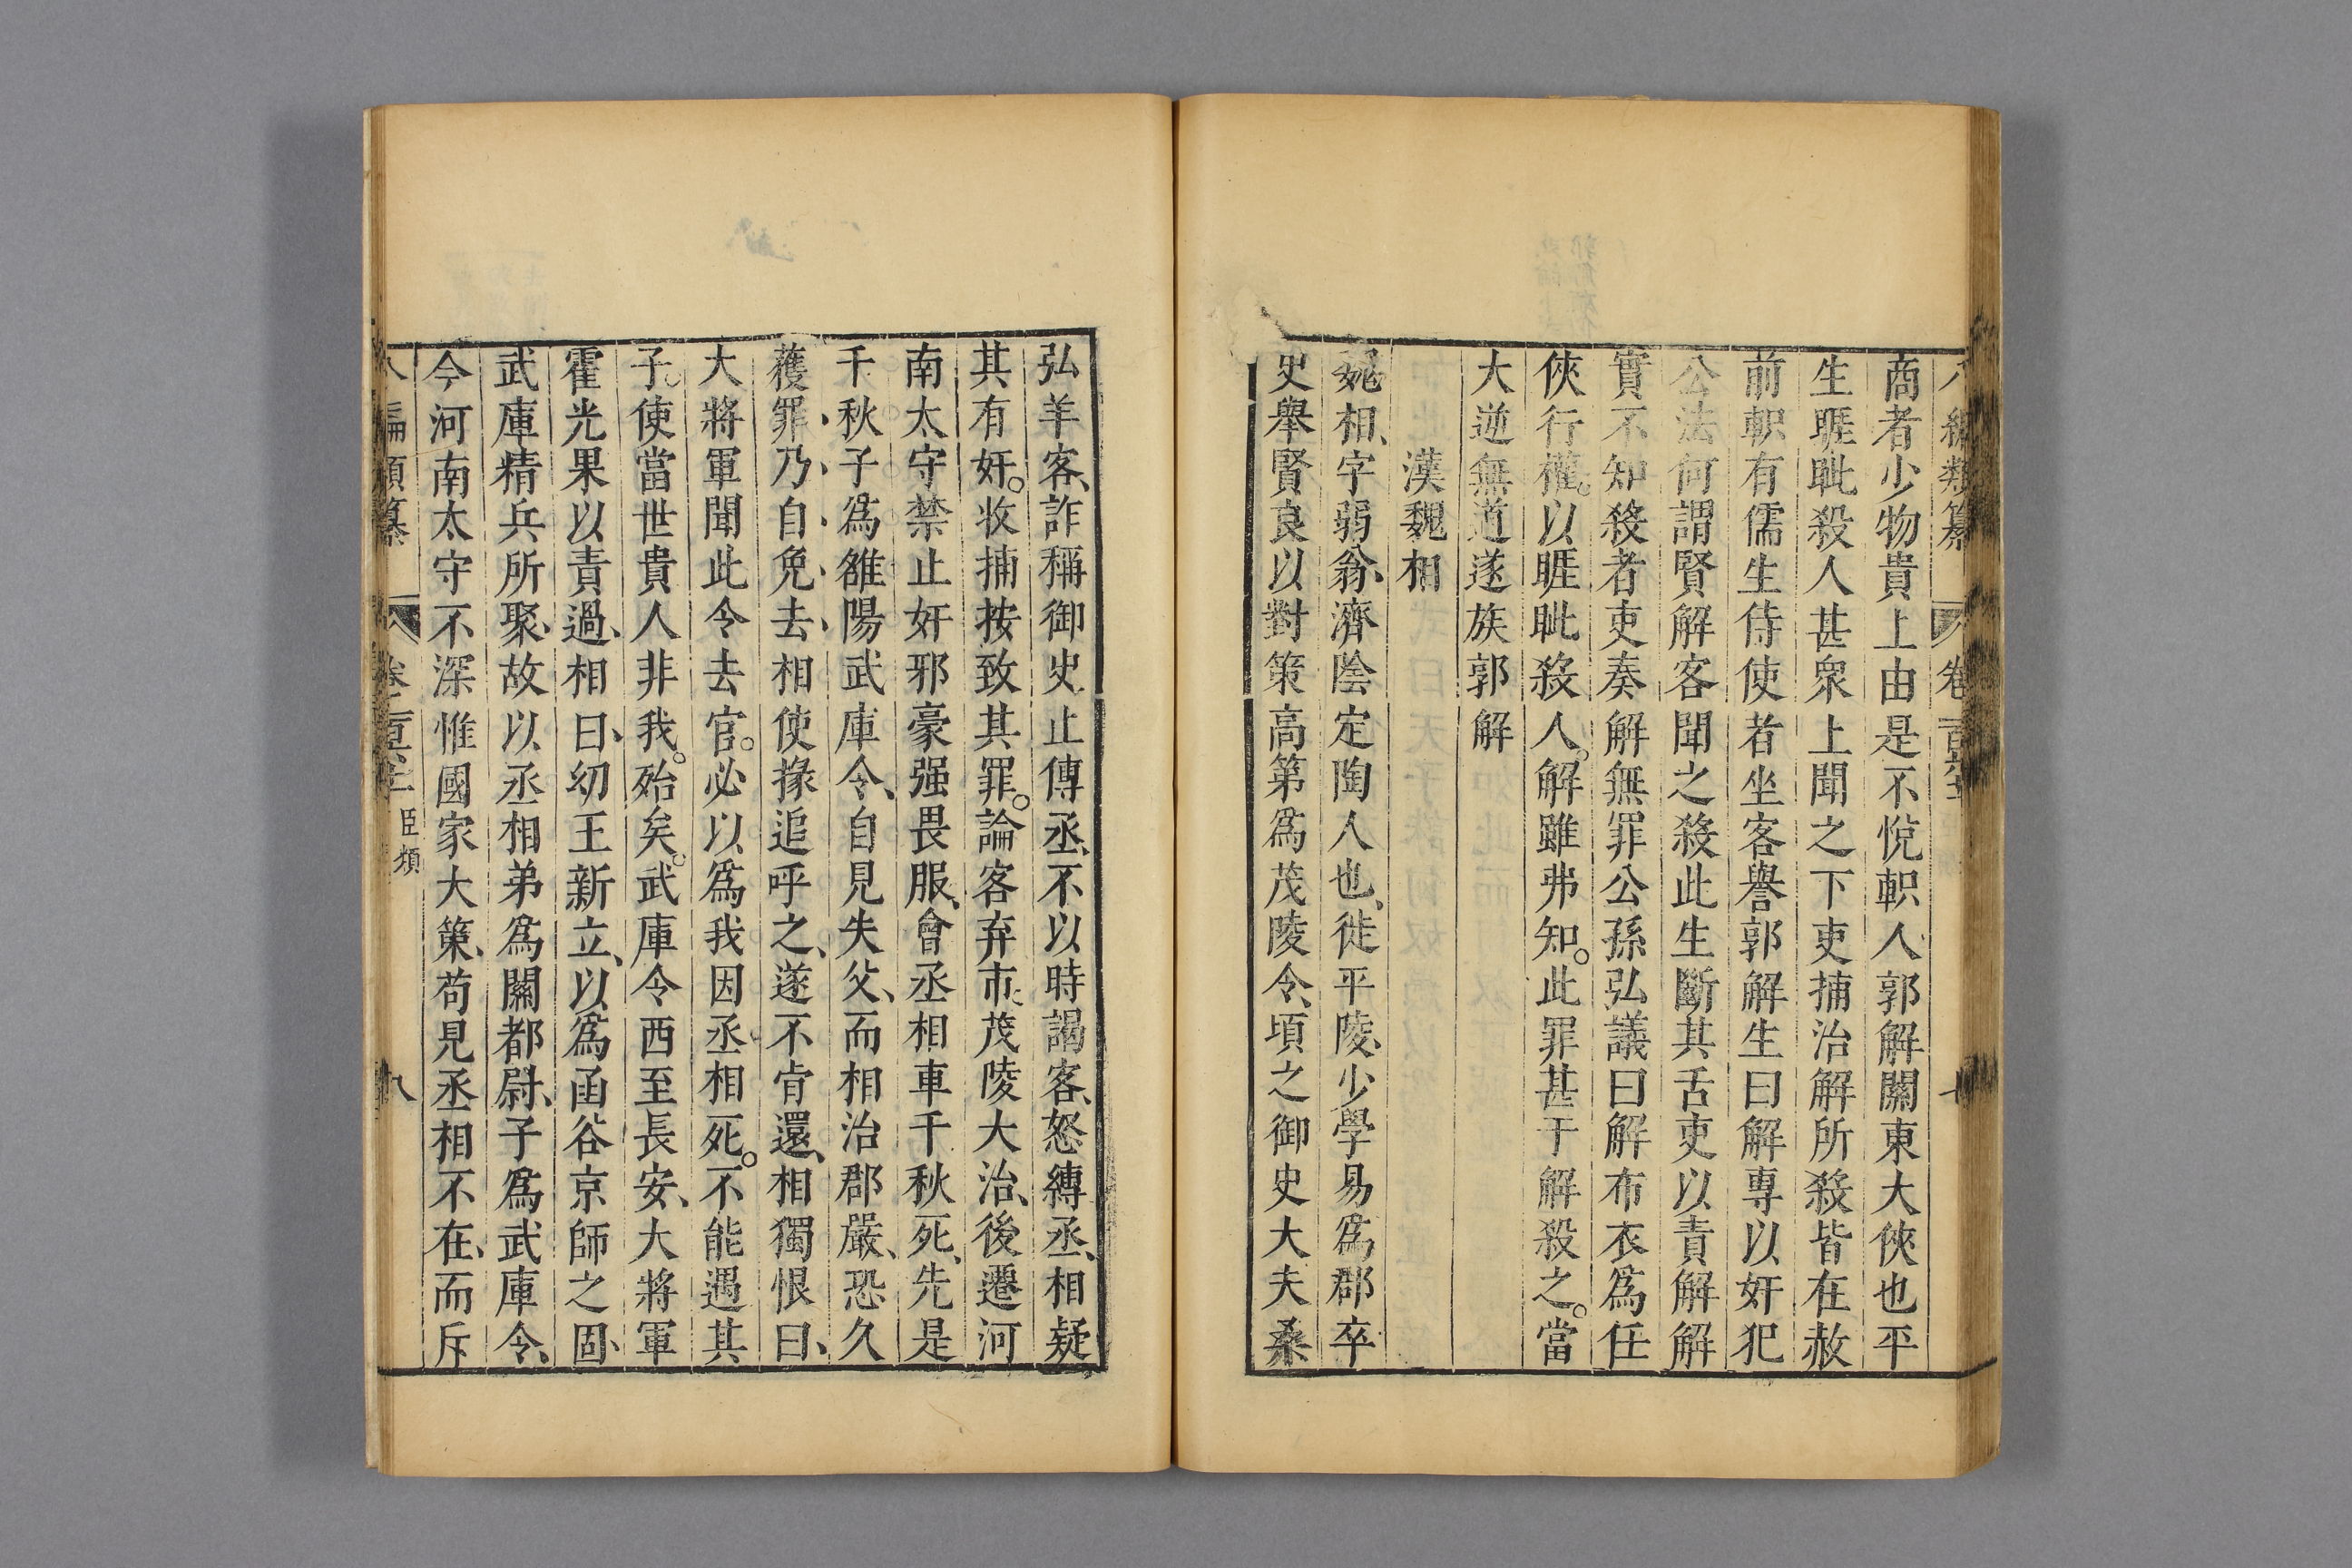 八編類纂 卷一百六十二 七
商者少物貴上由是不悅軹人郭解關東大俠也平
生睚眦殺人甚衆上聞之下吏捕治解所殺皆在赦
前軹有儒生侍使者坐客譽郭解生曰解專以奸犯
公法何謂賢解客聞之殺此生斷其舌吏以責解解
實不知殺者吏奏解無罪公孫弘議曰解布衣爲任
俠行權。以睚眦殺人。解雖弗知。此罪甚于解殺之。當
大逆無道遂族郭解
漢魏相
魏相、字弱翁、濟陰定陶人也、徙平陵、少學易爲郡卒
史舉賢良以對策高第爲茂陵令、頃之御史大夫桑
弘羊客、詐稱御史止傳丞、不以時謁客、怒縛丞、相疑
其有奸。收捕按致其罪。論客弃市、茂陵大治、後遷河
南太守禁止奸邪豪强畏服、會丞相車千秋死、先是
千秋子爲雒陽武庫令、自見失父、而相治郡嚴、恐久
獲罪、乃、自、免、去、相使掾追呼之、遂不肯還、相獨恨曰、
大將軍聞此令去官。必以爲我因丞相死。不能遇其
子。使當世貴人非我。殆矣。武庫令西至長安、大將軍
霍光果以責過、相曰、幼主新立、以爲函谷京師之固、
武庫精兵所聚、故以丞相弟爲關都尉、子爲武庫令、
今河南太守不深惟國家大策、苟見丞相不在、而斥
八編類纂 卷一百六十二 臣類 八